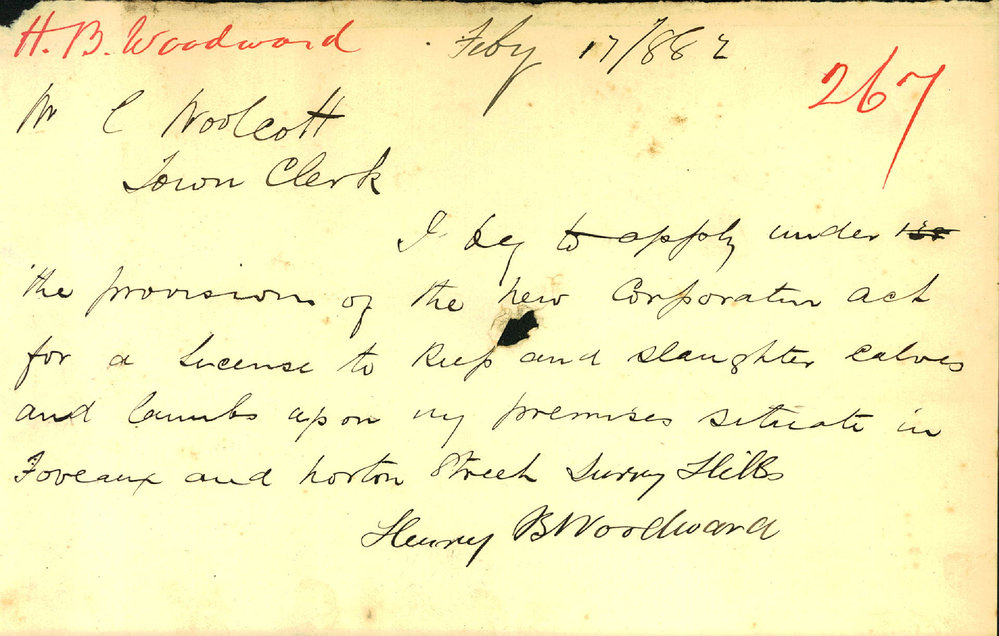 H. B. Woodward
Feby 17/882
267
Mr C Woolcott
Town Clerk
I beg to apply under
the provisions of the new Corporation act
for a Lucense to keep and slaughter calves
and lambs upon my premises situate in
Foveaux and Norton Street Surry Hills
Henry B Woodward